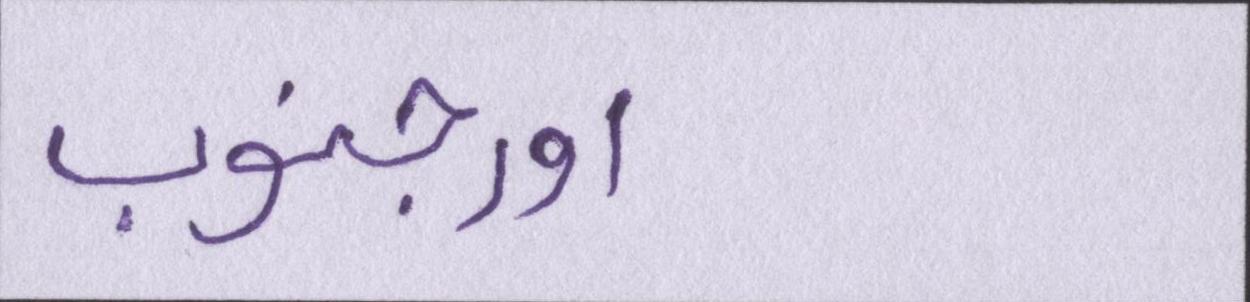 اور جنوب